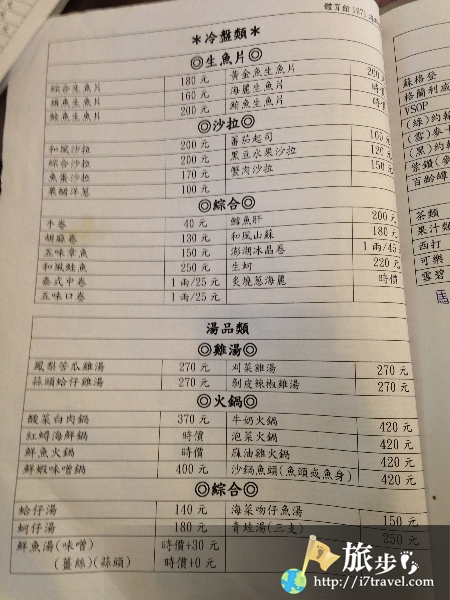 體育館 1971
*冷盤類*
◎生魚片◎
綜合生魚片 180 元 黃金魚生魚片 200 元
旗魚生魚片 160 元 海麗生魚片 時價
鮭魚生魚片 200 元 鮪魚生魚片 時價
◎沙拉◎
和風沙拉 200 元 蕃茄起司
綜合沙拉 200 元 黑豆水果沙拉 120 元
魚蛋沙拉 170 元 蟹肉沙拉 150 元
果醋洋蔥 100 元
◎綜合◎
手卷 40 元 鱈魚肝 200 元
胡麻卷 130 元 和風山蘇 180 元
五味章魚 150 元 澎湖冰晶卷 1 兩/45
和風鮭魚 250 元 生蚵 220 元
泰式中卷 1 兩/25 元 炙燒蔥海麗 時價
五味口卷 1 兩/25 元
湯品類
◎雞湯◎
鳳梨苦瓜雞湯 270 元 刈菜雞湯 270 元
蒜頭蛤仔雞湯 270 元 剝皮辣椒雞湯 270 元
◎火鍋◎
酸菜白肉鍋 370 元 牛奶火鍋 420 元
紅蟳海鮮鍋 時價 泡菜火鍋 420 元
鮮魚火鍋 時價 麻油雞火鍋 420 元
鮮蝦味噌鍋 400 元 沙鍋魚頭(魚頭或魚身) 420 元
◎綜合◎
蛤仔湯 140 元 海菜吻仔魚湯 150 元
蚵仔湯 180 元 青蛙湯(三支) 250 元
鮮魚湯(味噌) 時價+30 元
(薑絲)(蒜頭) 時價+0 元
蘇格登
格蘭利威
VSOP
(綠)約翰
(雪)麥卡
(黑)約翰
紫鑽(麥
百齡罈
茶類
果汁類
西打
可樂
雪碧
旅步
http://i7travel.com